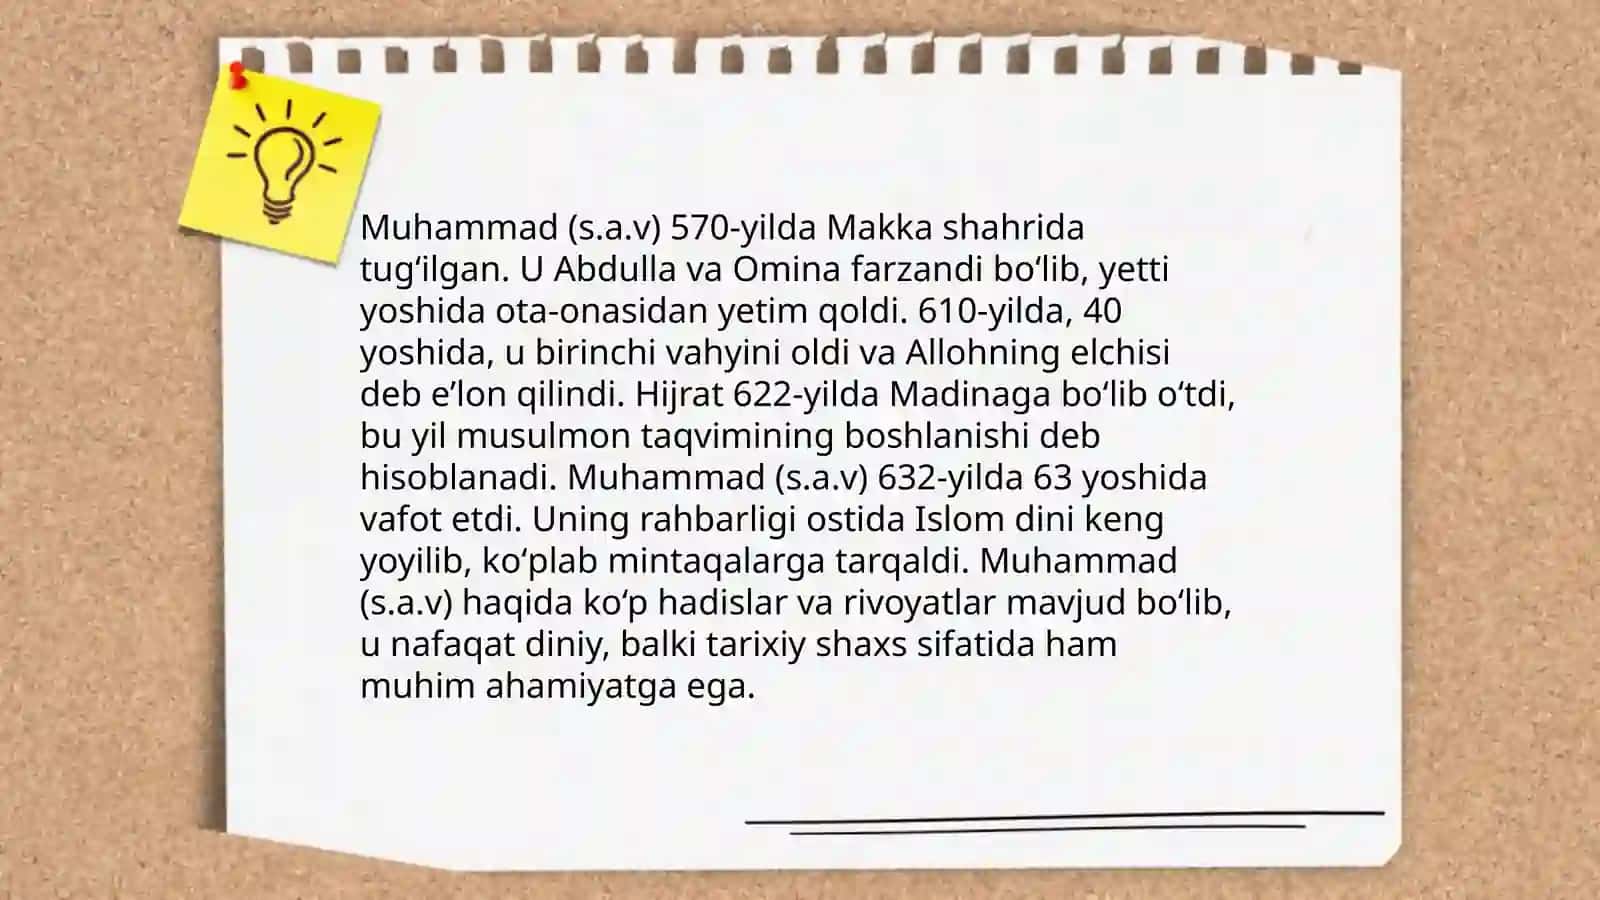 Muhammad (s.a.v) 570-yilda Makka shahrida
tug‘ilgan. U Abdulla va Omina farzandi bo‘lib, yetti
yoshida ota-onasidan yetim qoldi. 610-yilda, 40
yoshida, u birinchi vahyini oldi va Allohning elchisi
deb e’lon qilindi. Hijrat 622-yilda Madinaga bo‘lib o‘tdi,
bu yil musulmon taqvimining boshlanishi deb
hisoblanadi. Muhammad (s.a.v) 632-yilda 63 yoshida
vafot etdi. Uning rahbarligi ostida Islom dini keng
yoyilib, ko‘plab mintaqalarga tarqaldi. Muhammad
(s.a.v) haqida ko‘p hadislar va rivoyatlar mavjud bo‘lib,
u nafaqat diniy, balki tarixiy shaxs sifatida ham
muhim ahamiyatga ega.